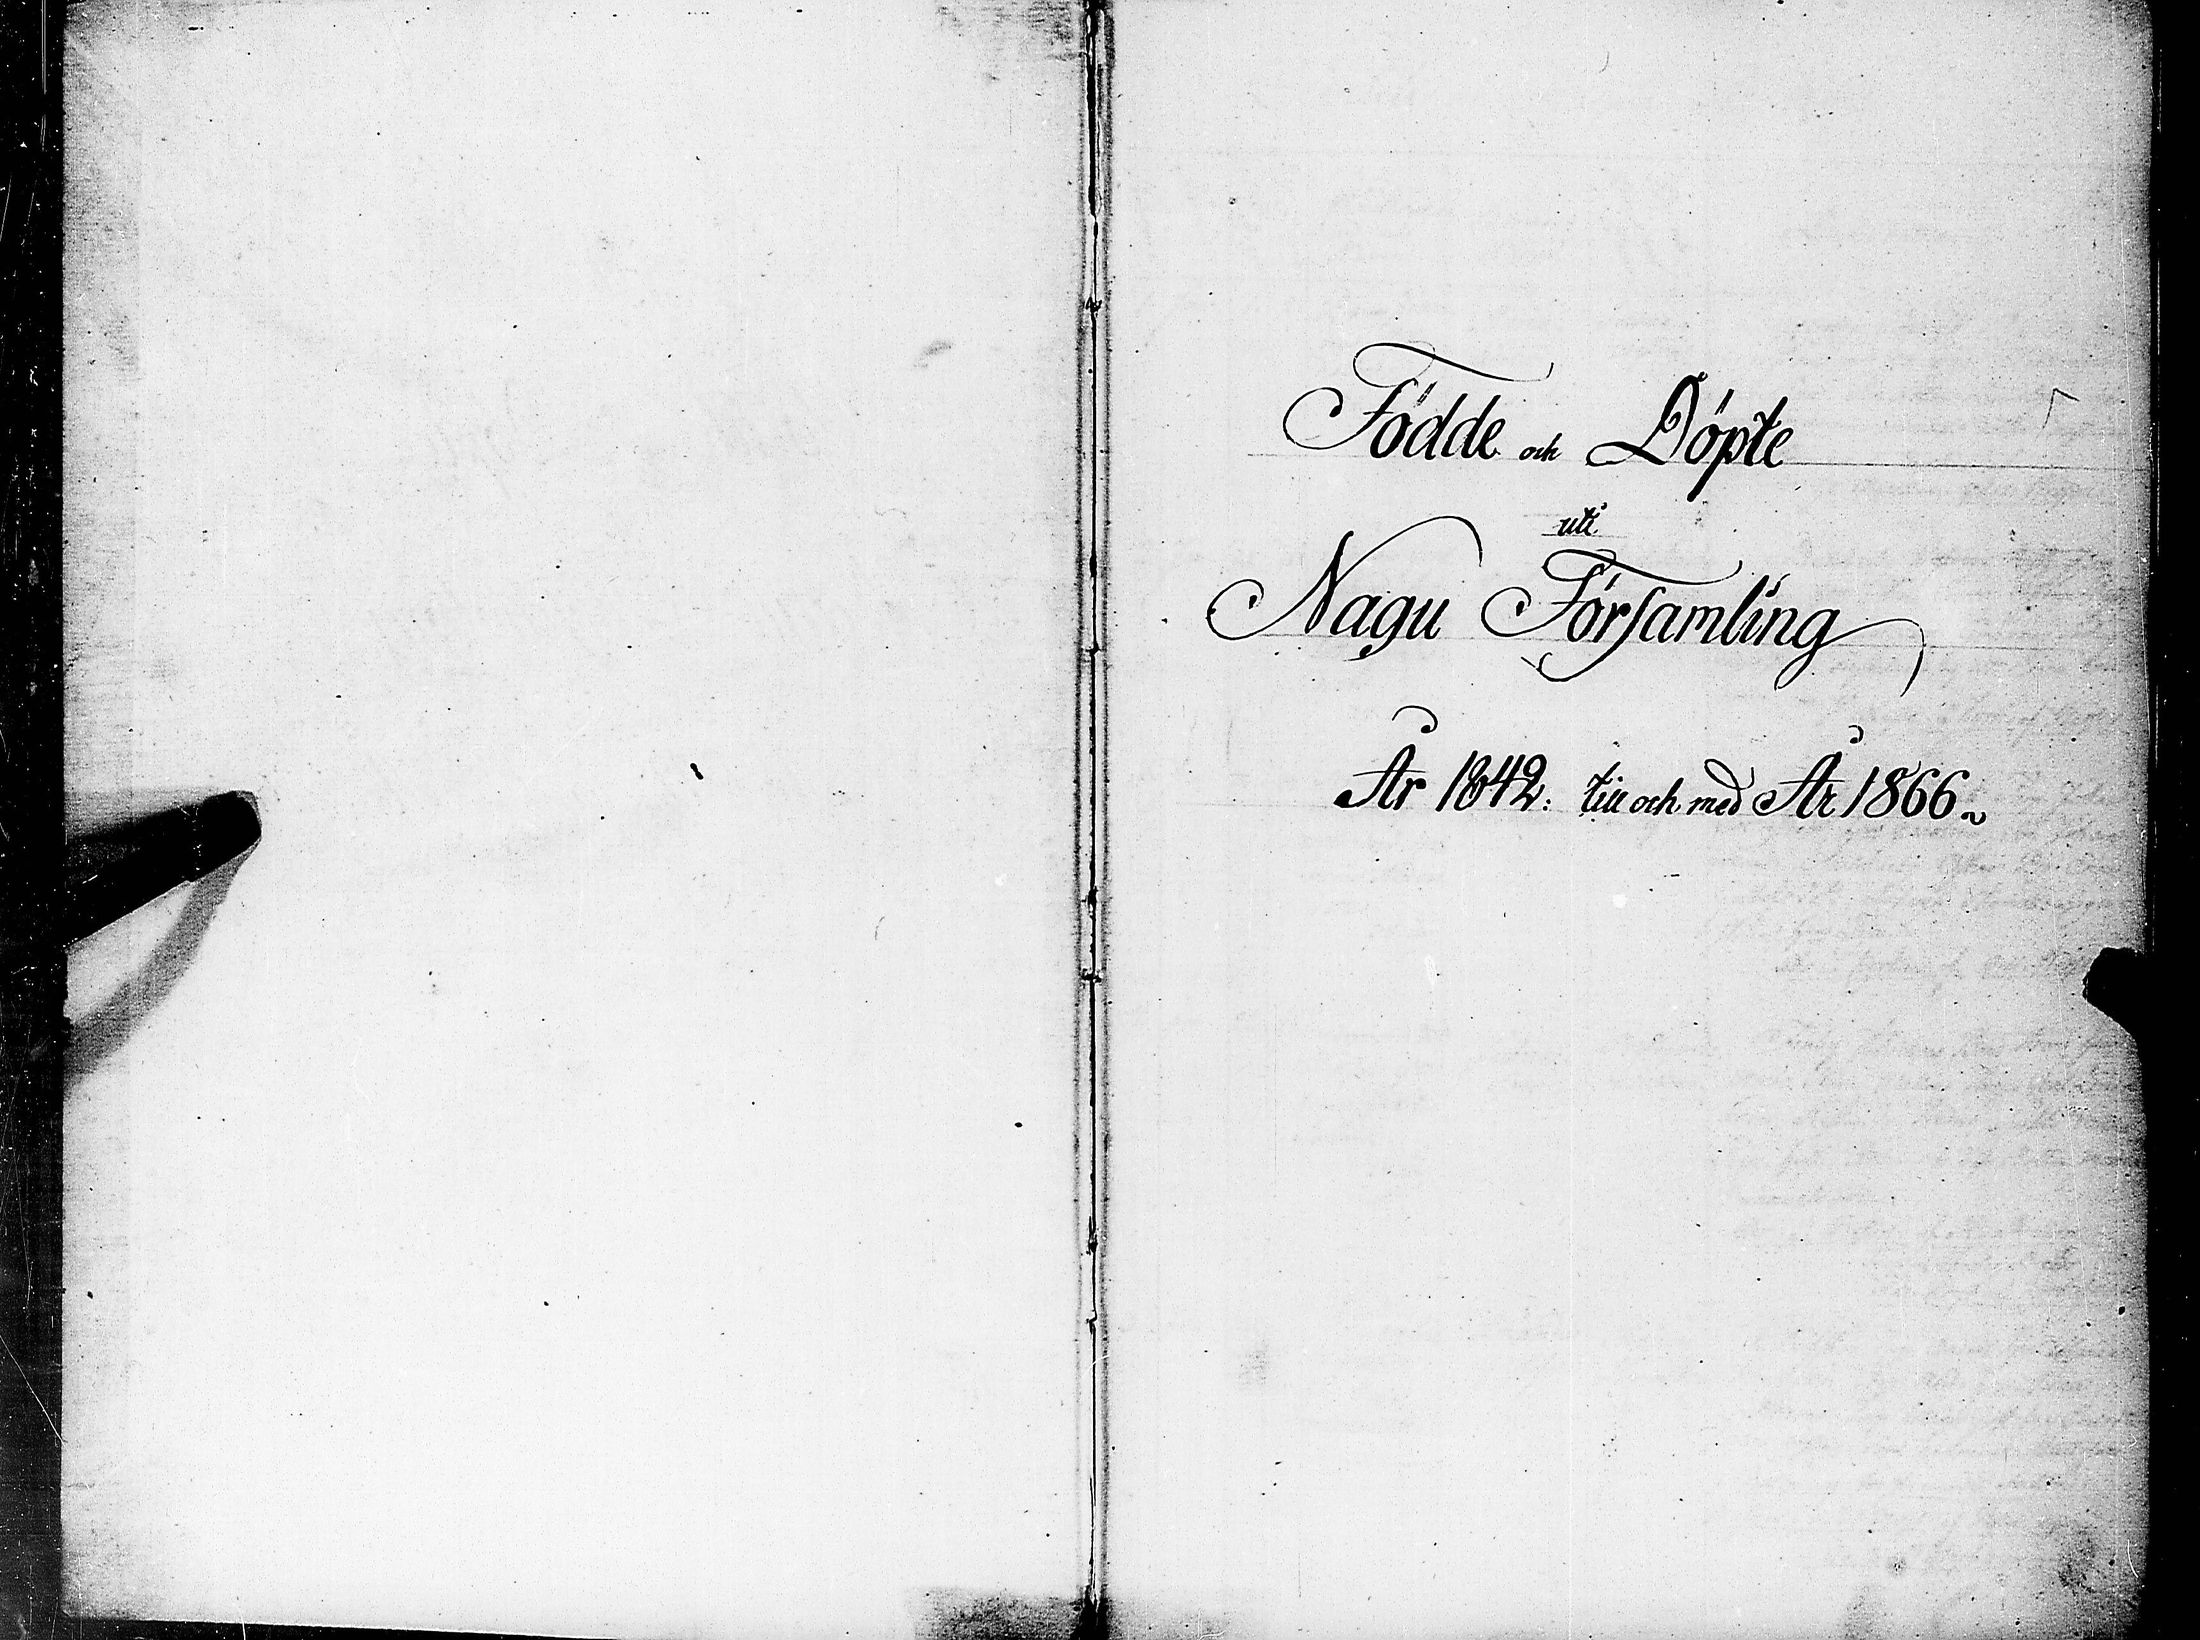 Födde och Döpte
uti
Nagu Församling
År 1842: till och med År 1866.